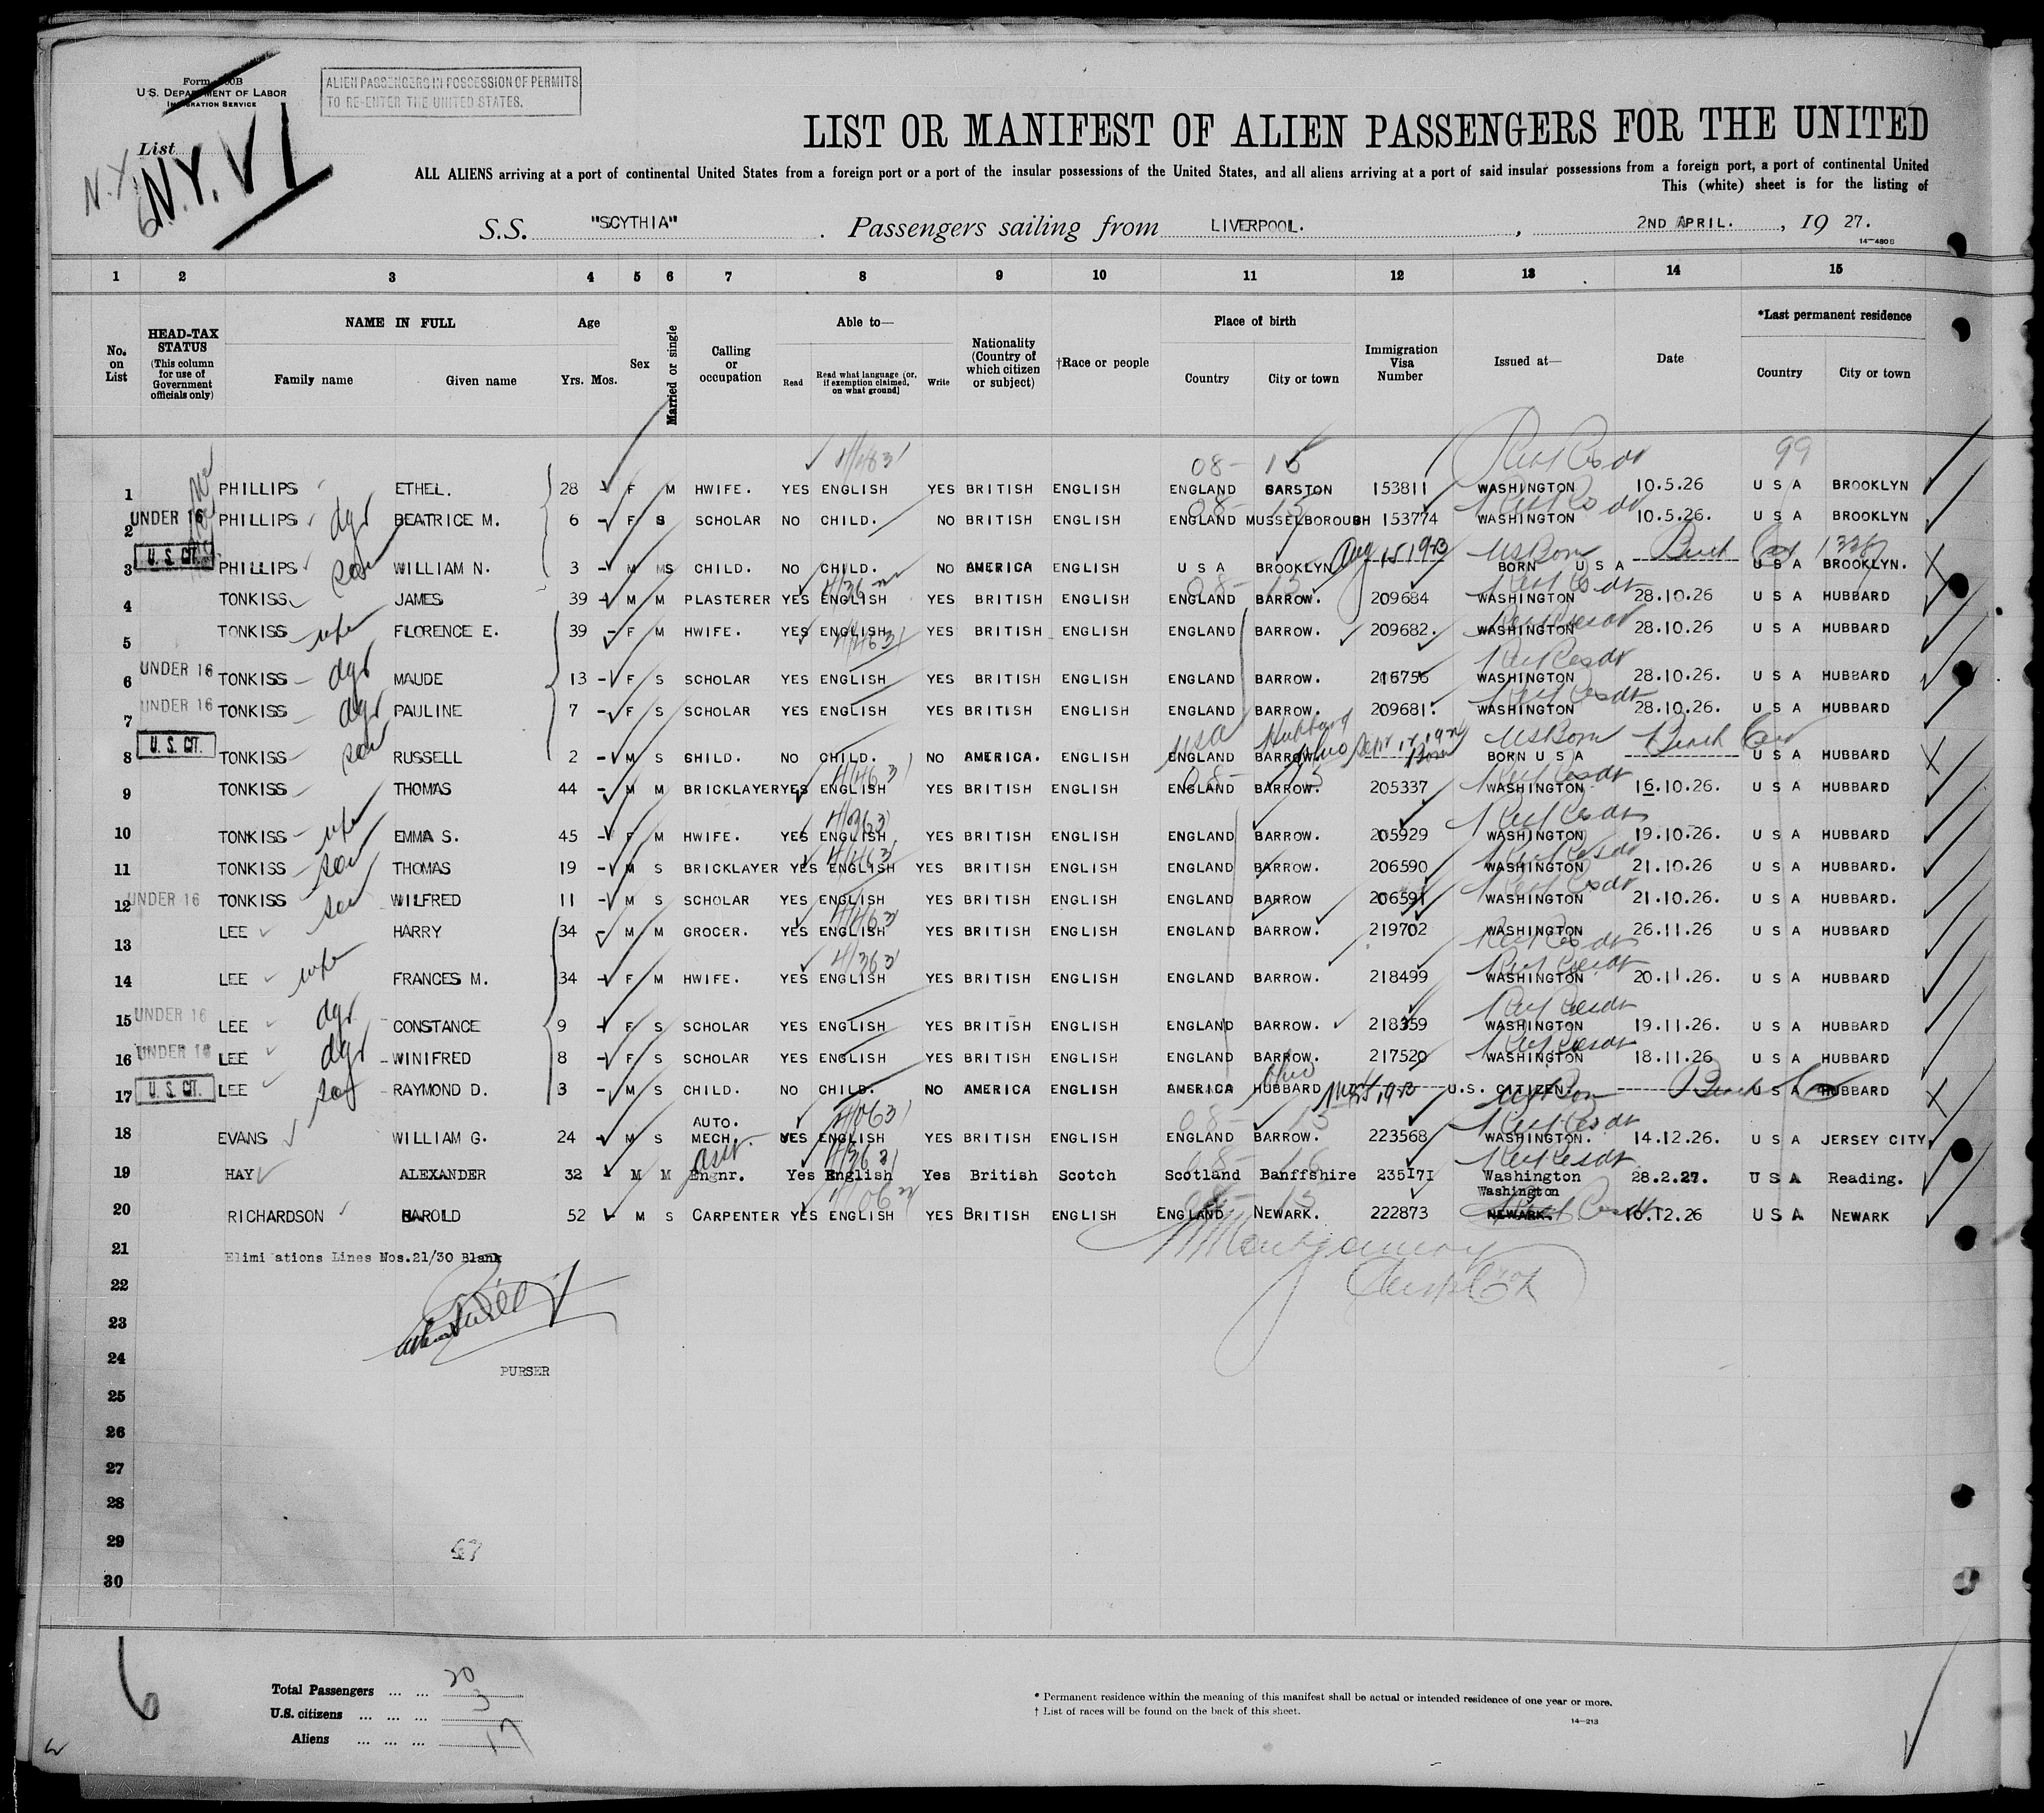 Form 500B
U.S. DEPARTMENT OF LABOR
IMMIGRATION SERVICE
ALIEN PASSENGERS IN POSSESSION OF PERMITS
TO RE-ENTER THE UNITED STATES.
List
N.Y. N.Y. VI
LIST OR MANIFEST OF ALIEN PASSENGERS FOR THE UNITED
ALL ALIENS arriving at a port of continental United States from a foreign port or a port of the insular possessions of the United States, and all aliens arriving at a port of said insular possessions from a foreign port, a port of continental United
This (white) sheet is for the listing of
S.S. "SCYTHIA" . Passengers sailing from LIVERPOOL. , 2ND APRIL. , 19 27.
14-480B
1 2 3 4 5 6 7 8 9 10 11 12 13 14 15
No. on List
HEAD-TAX STATUS (This column for use of Government officials only)
NAME IN FULL Family name Given name
Age Yrs. Mos.
Sex
Married or single
Calling or occupation
Able to— Read Read what language [or, if exemption claimed, on what ground] Write
Nationality (Country of which citizen or subject)
†Race or people
Place of birth Country City or town
Immigration Visa Number
Issued at—
Date
*Last permanent residence Country City or town
08- 15 99
1 PHILLIPS ETHEL. 28 - F M HWIFE. YES ENGLISH YES BRITISH ENGLISH ENGLAND GARSTON 153811 WASHINGTON 10.5.26 U S A BROOKLYN
2 UNDER 16 PHILLIPS dgr BEATRICE M. 6 - F S SCHOLAR NO CHILD. NO BRITISH ENGLISH ENGLAND MUSSELBOROUGH 153774 WASHINGTON 10.5.26. U S A BROOKLYN
3 U.S. CIT. PHILLIPS son WILLIAM N. 3 - M S CHILD. NO CHILD. NO AMERICA ENGLISH U S A BROOKLYN Aug 15 1923 US Born BORN U S A Birth U S A BROOKLYN.
4 TONKISS JAMES 39 - M M PLASTERER YES ENGLISH YES BRITISH ENGLISH ENGLAND BARROW. 209684 WASHINGTON 28.10.26 U S A HUBBARD
5 TONKISS wife FLORENCE E. 39 - F M HWIFE. YES ENGLISH YES BRITISH ENGLISH ENGLAND BARROW. 209682. WASHINGTON 28.10.26 U S A HUBBARD
6 UNDER 16 TONKISS dgr MAUDE 13 - F S SCHOLAR YES ENGLISH YES BRITISH ENGLISH ENGLAND BARROW. 216756 WASHINGTON 28.10.26. U S A HUBBARD
7 UNDER 16 TONKISS dgr PAULINE 7 - F S SCHOLAR YES ENGLISH YES BRITISH ENGLISH ENGLAND BARROW. 209681. WASHINGTON 28.10.26. U S A HUBBARD
USA Hubbard
8 U.S. CIT. TONKISS son RUSSELL 2 - M S CHILD. NO CHILD. NO AMERICA. ENGLISH ENGLAND BARROW Ohio US Born BORN U S A Birth U S A HUBBARD
9 TONKISS THOMAS 44 - M M BRICKLAYER YES ENGLISH YES BRITISH ENGLISH ENGLAND BARROW. 205337 WASHINGTON 16.10.26. U S A HUBBARD
10 TONKISS wife EMMA S. 45 - F M HWIFE. YES ENGLISH YES BRITISH ENGLISH ENGLAND BARROW. 205929 WASHINGTON 19.10.26. U S A HUBBARD
11 TONKISS son THOMAS 19 - M S BRICKLAYER YES ENGLISH YES BRITISH ENGLISH ENGLAND BARROW. 206590 WASHINGTON 21.10.26 U S A HUBBARD.
12 UNDER 16 TONKISS son WILFRED 11 - M S SCHOLAR YES ENGLISH YES BRITISH ENGLISH ENGLAND BARROW 206591 WASHINGTON 21.10.26. U S A HUBBARD.
13 LEE HARRY 34 - M M GROCER. YES ENGLISH YES BRITISH ENGLISH ENGLAND BARROW. 219702 WASHINGTON 26.11.26 U S A HUBBARD
14 LEE wife FRANCES M. 34 - F M HWIFE. YES ENGLISH YES BRITISH ENGLISH ENGLAND BARROW. 218499 WASHINGTON 20.11.26. U S A HUBBARD
15 UNDER 16 LEE dgr CONSTANCE 9 - F S SCHOLAR YES ENGLISH YES BRITISH ENGLISH ENGLAND BARROW. 218359 WASHINGTON 19.11.26. U S A HUBBARD
16 UNDER 16 LEE dgr WINIFRED 8 - F S SCHOLAR YES ENGLISH YES BRITISH ENGLISH ENGLAND BARROW. 217520 WASHINGTON 18.11.26 U S A HUBBARD
17 U.S. CIT. LEE son RAYMOND D. 3 - M S CHILD. NO CHILD. NO AMERICA ENGLISH AMERICA HUBBARD Ohio U.S. CITIZEN. US Born Birth U S A HUBBARD
18 EVANS WILLIAM G. 24 - M S AUTO. MECH. YES ENGLISH YES BRITISH ENGLISH ENGLAND BARROW. 223568 WASHINGTON. 14.12.26. U S A JERSEY CITY
19 HAY ALEXANDER 32 M M Asst. Engnr. Yes English Yes British Scotch Scotland Banffshire 235171 Washington 28.2.27. U S A Reading.
Washington
20 RICHARDSON HAROLD 52 - M S CARPENTER YES ENGLISH YES BRITISH ENGLISH ENGLAND NEWARK. 222873 NEWARK. 10.12.26 U S A NEWARK
21 Elimi ations Lines Nos.21/30 Blank
Montgomery
22
23
24 PURSER
25
26
27
28
29
30
6
Total Passengers ... ... 20
U.S. citizens ... ... ... 3
Aliens ... ... ... 17
* Permanent residence within the meaning of this manifest shall be actual or intended residence of one year or more.
† List of races will be found on the back of this sheet.
14-213